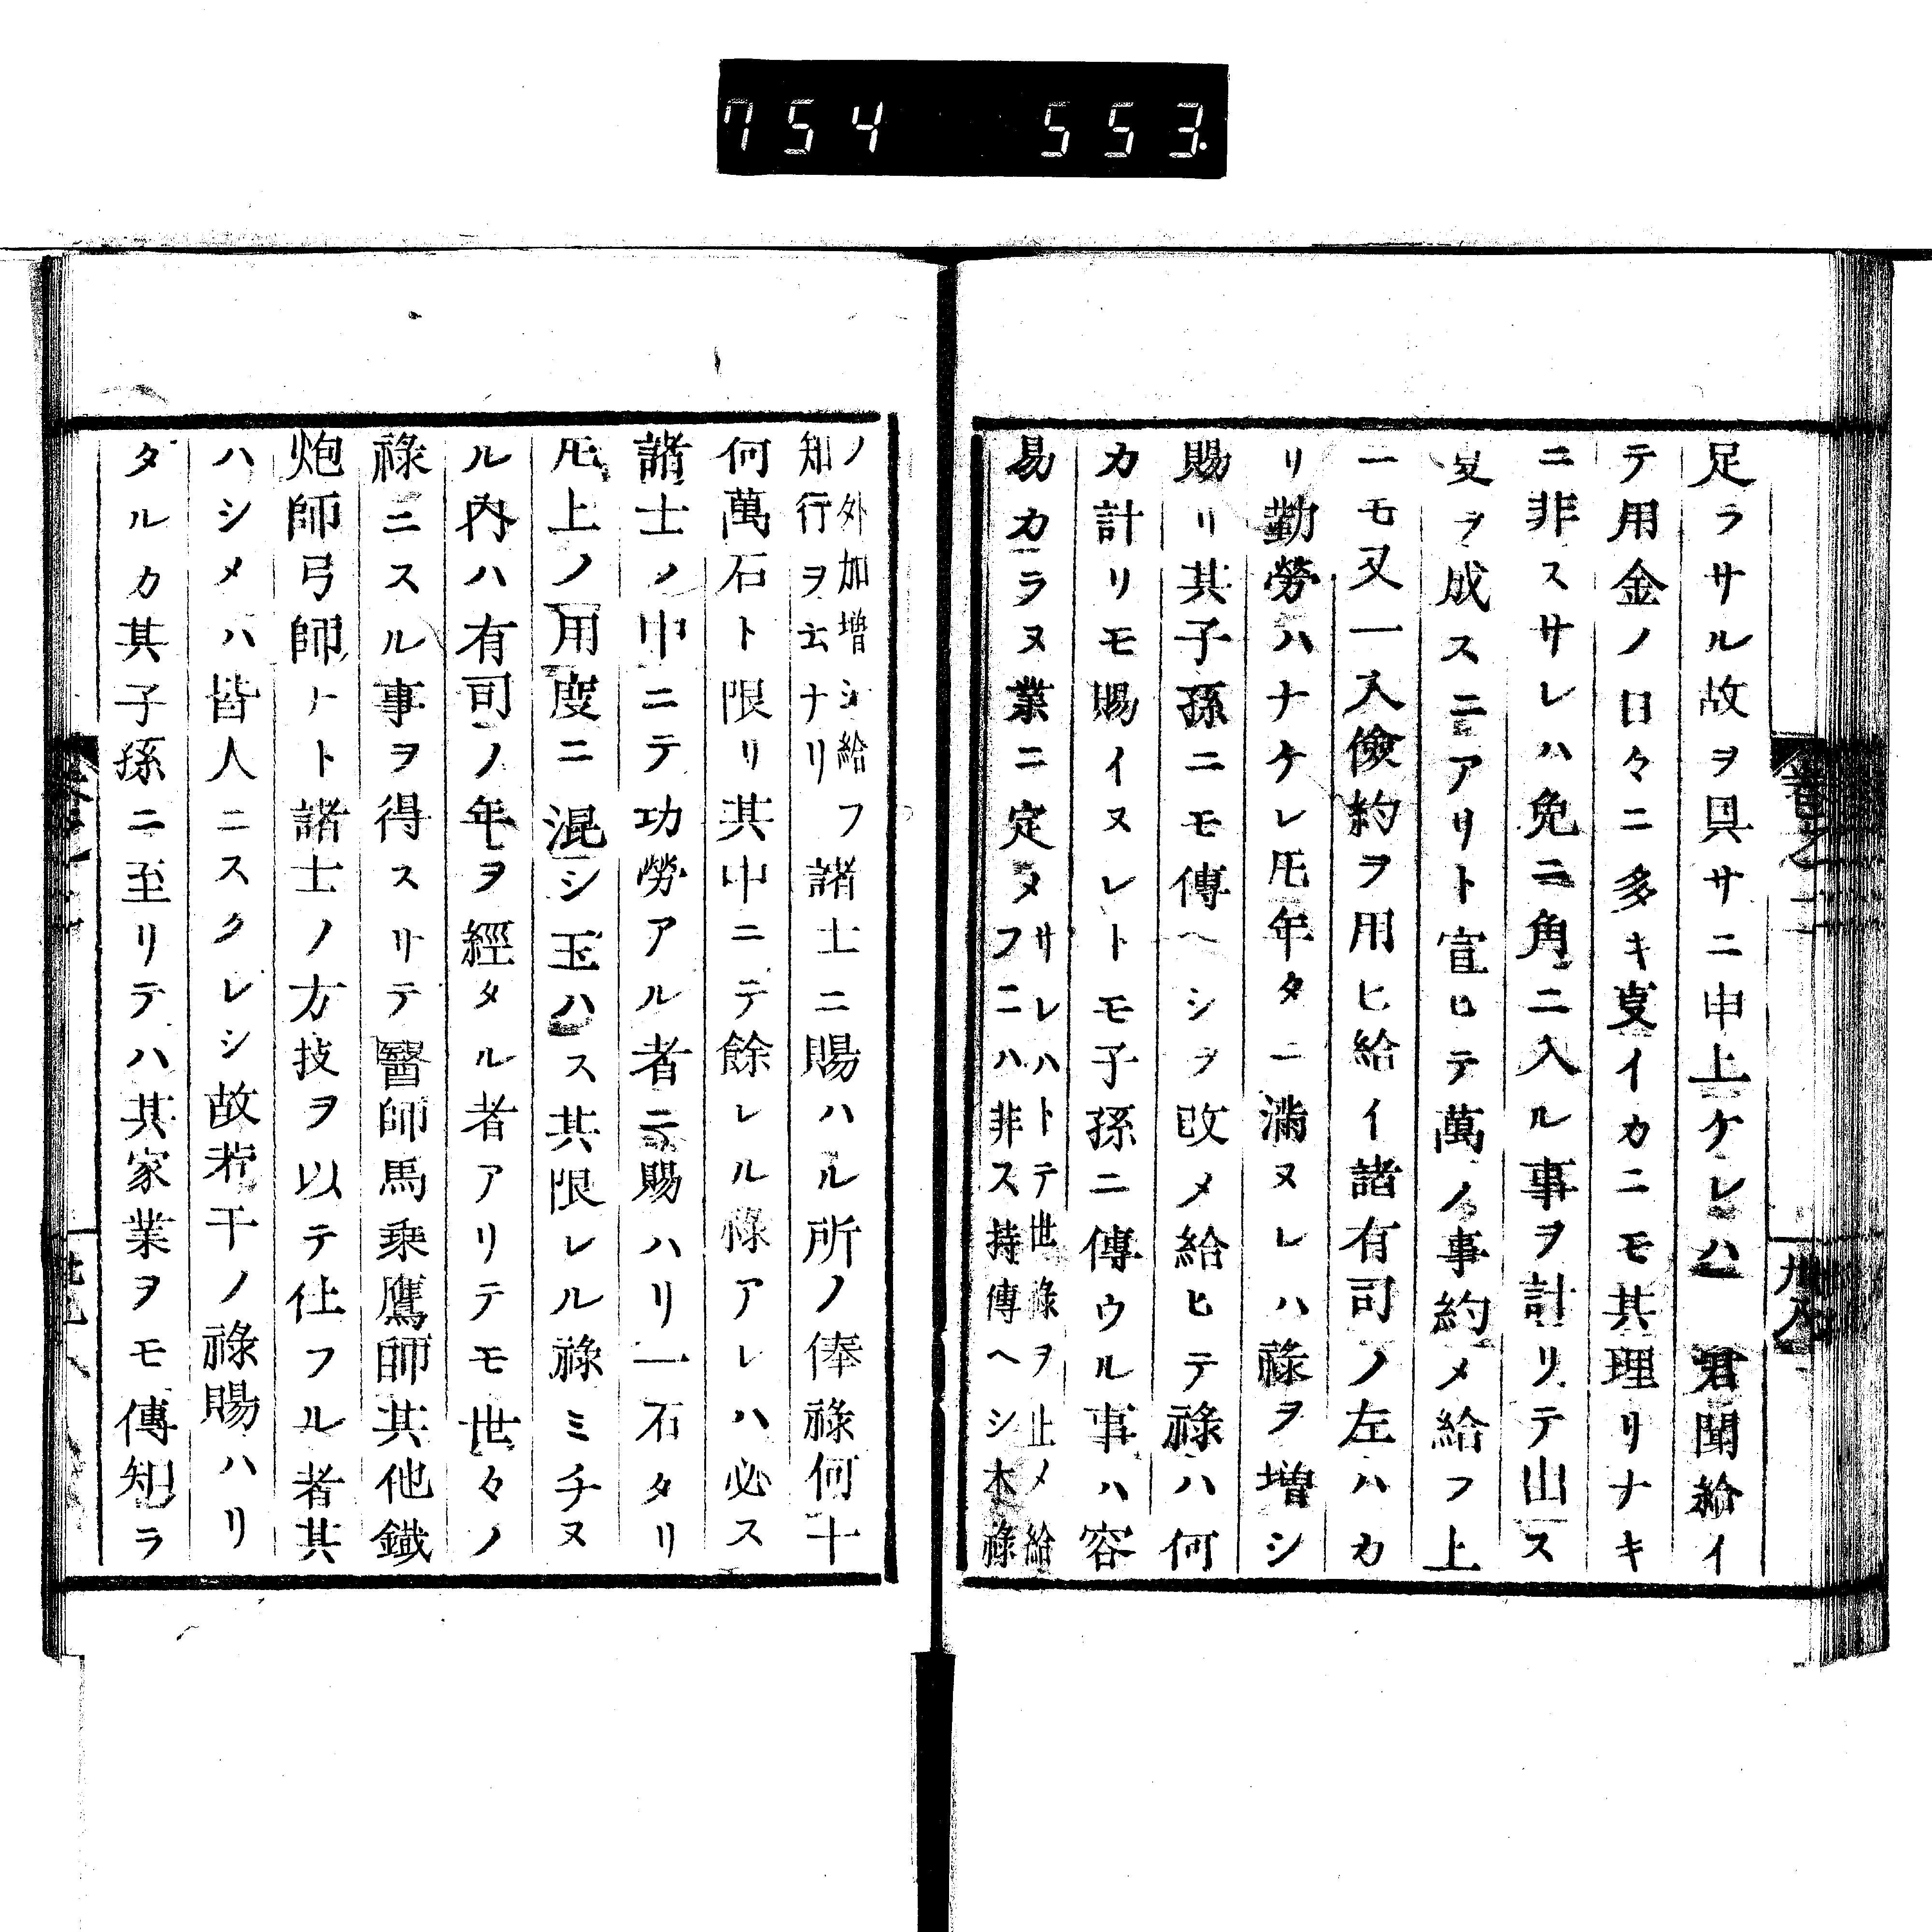 754 553.
足ラサル故ヲ具サニ申上ケレハ 君聞給イ
テ用金ノ日々ニ多キ叓イカニモ其理リナキ
ニ非スサレハ免ニ角ニ入ル事ヲ計リテ出ス
叓ヲ成スニアリト宣ヒテ萬ノ事約メ給フ上
ニモ又一入儉約ヲ用ヒ給イ諸有司ノ左ハカ
リ勤勞ハナケレ𪜈年タニ滿ヌレハ祿ヲ増シ
賜リ其子孫ニモ傳ヘシヲ改メ給ヒテ祿ハ何
カ計リモ賜イヌレトモ子孫ニ傳ウル事ハ容
易カラヌ業ニ定メ
サレハトテ世祿ヲ止メ給
フニハ非ス持傳ヘシ本祿
ノ外加増シ給
知行ヲ云ナリ
フ諸士ニ賜ハル所ノ俸祿何十
何萬石ト限リ其中ニテ餘レル祿アレハ必ス
諸士ノ中ニテ功勞アル者ニ賜ハリ一石タリ
𪜈上ノ用度ニ混シ玉ハス其限レル祿ミチヌ
ル内ハ有司ノ年ヲ經タル者アリテモ世々ノ
祿ニスル事ヲ得スリテ醫師馬乗鷹師其他鐵
炮師弓師ナト諸士ノ方技ヲ以テ仕フル者其
ハシメハ皆人ニスクレシ故若干ノ祿賜ハリ
タルカ其子孫ニ至リテハ其家業ヲモ傳知ラ